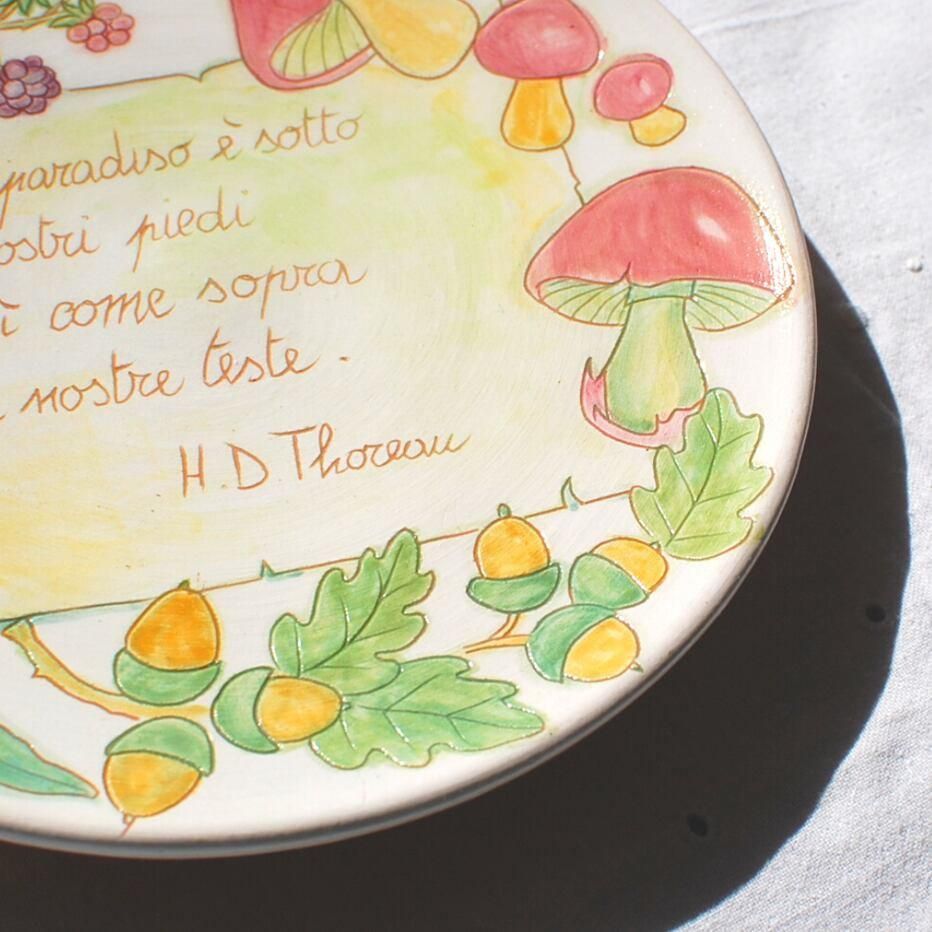 paradiso è sotto
ostri piedi
ì come sopra
nostre teste.
H.D.Thoreau